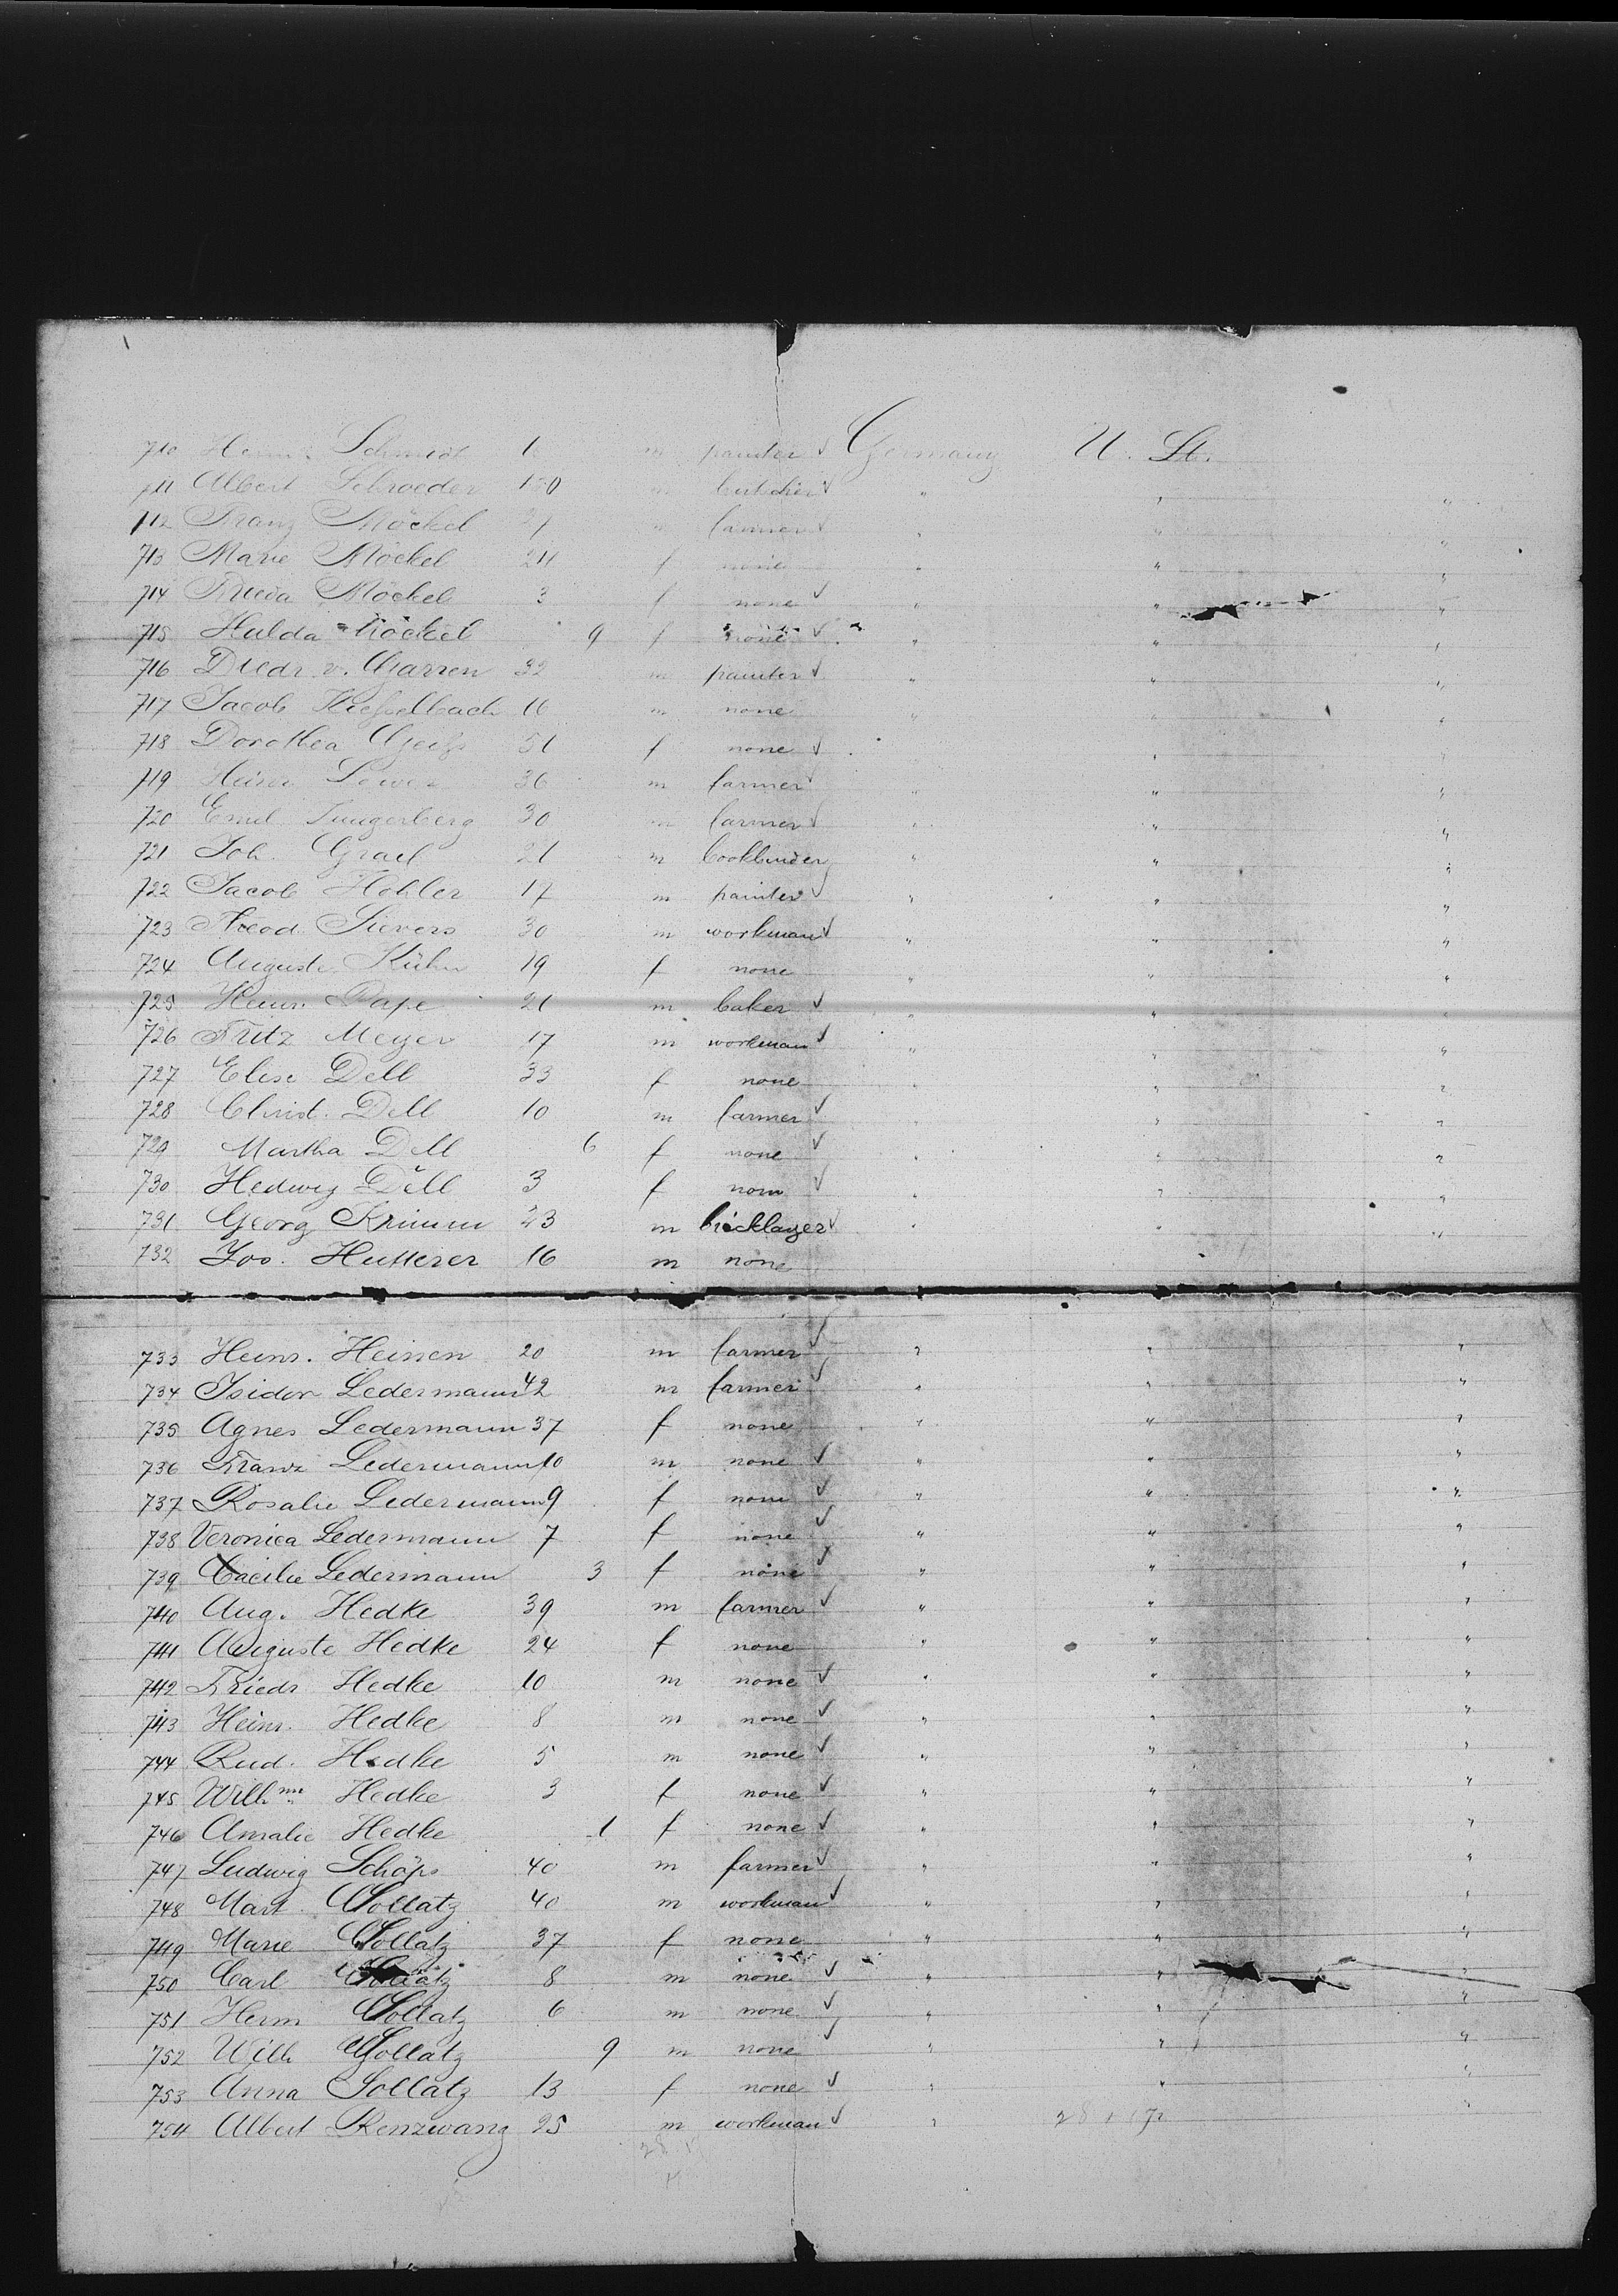 710 Schmidt m painter ✓ Germany U. St.
711 Albert Schroeder m butcher ✓ " " "
712 Franz Möckel m farmer ✓ " " "
713 Marie Möckel 24 f none " " "
714 Frieda Möckel 3 f none ✓ " " "
715 Hulda Möckel 9 f none ✓ " " "
716 Diedr. v. Garren 32 m painter ✓ " " "
717 Jacob 16 m none " " "
718 Dorothea Geiss 51 f none ✓ " "
719 36 m farmer ✓ " " "
720 Emil Jungerberg 30 m farmer ✓ " " "
721 Joh. 21 m bookbinder " " "
722 Jacob Hohler 17 m painter ✓ " " "
723 Theod. Sievers 30 m workman ✓ " " "
724 Auguste Kühn 19 f none " " "
725 Heinr. Pape 21 m baker ✓ " " "
726 Fritz Meyer 17 m workman ✓ " " "
727 Elise Dell 33 f none " " "
728 Christ. Dell 10 m farmer ✓ " " "
729 Martha Dell 6 f none ✓ " " "
730 Hedwig Dell 3 f none ✓ " " "
731 Georg Krimm 23 m bricklayer ✓ " " "
732 Jos. Hutterer 16 m none
733 Heinr. Heinen 20 m farmer ✓ " " "
734 Isidor Ledermann 42 m farmer ✓ " " "
735 Agnes Ledermann 37 f none " " "
736 Franz Ledermann 10 m none ✓ " " "
737 Rosalie Ledermann 9 f none ✓ " " "
738 Veronica Ledermann 7 f none ✓ " " "
739 Cacilie Ledermann 3 f none ✓ " " "
740 Aug. Hedke 39 m farmer ✓ " " "
741 Auguste Hedke 24 f none " " "
742 Friedr Hedke 10 m none ✓ " " "
743 Heinr. Hedke 8 m none ✓ " " "
744 Rud. Hedke 5 m none ✓ " " "
745 Wilh.ne Hedke 3 f none ✓ " " "
746 Amalie Hedke 1 f none ✓ " " "
747 Ludwig Schöps 40 m farmer ✓ " " "
748 Mart. Gollatz 40 m workman ✓ " " "
749 Marie Gollatz 37 f none " " "
750 Carl Gollatz 8 m none ✓ " " "
751 Herm Gollatz 6 m none ✓ " " "
752 Wilh Gollatz 9 m none ✓ " " "
753 Anna Gollatz 13 f none ✓ " " "
754 Albert Renzwang 25 m workman ✓ " "